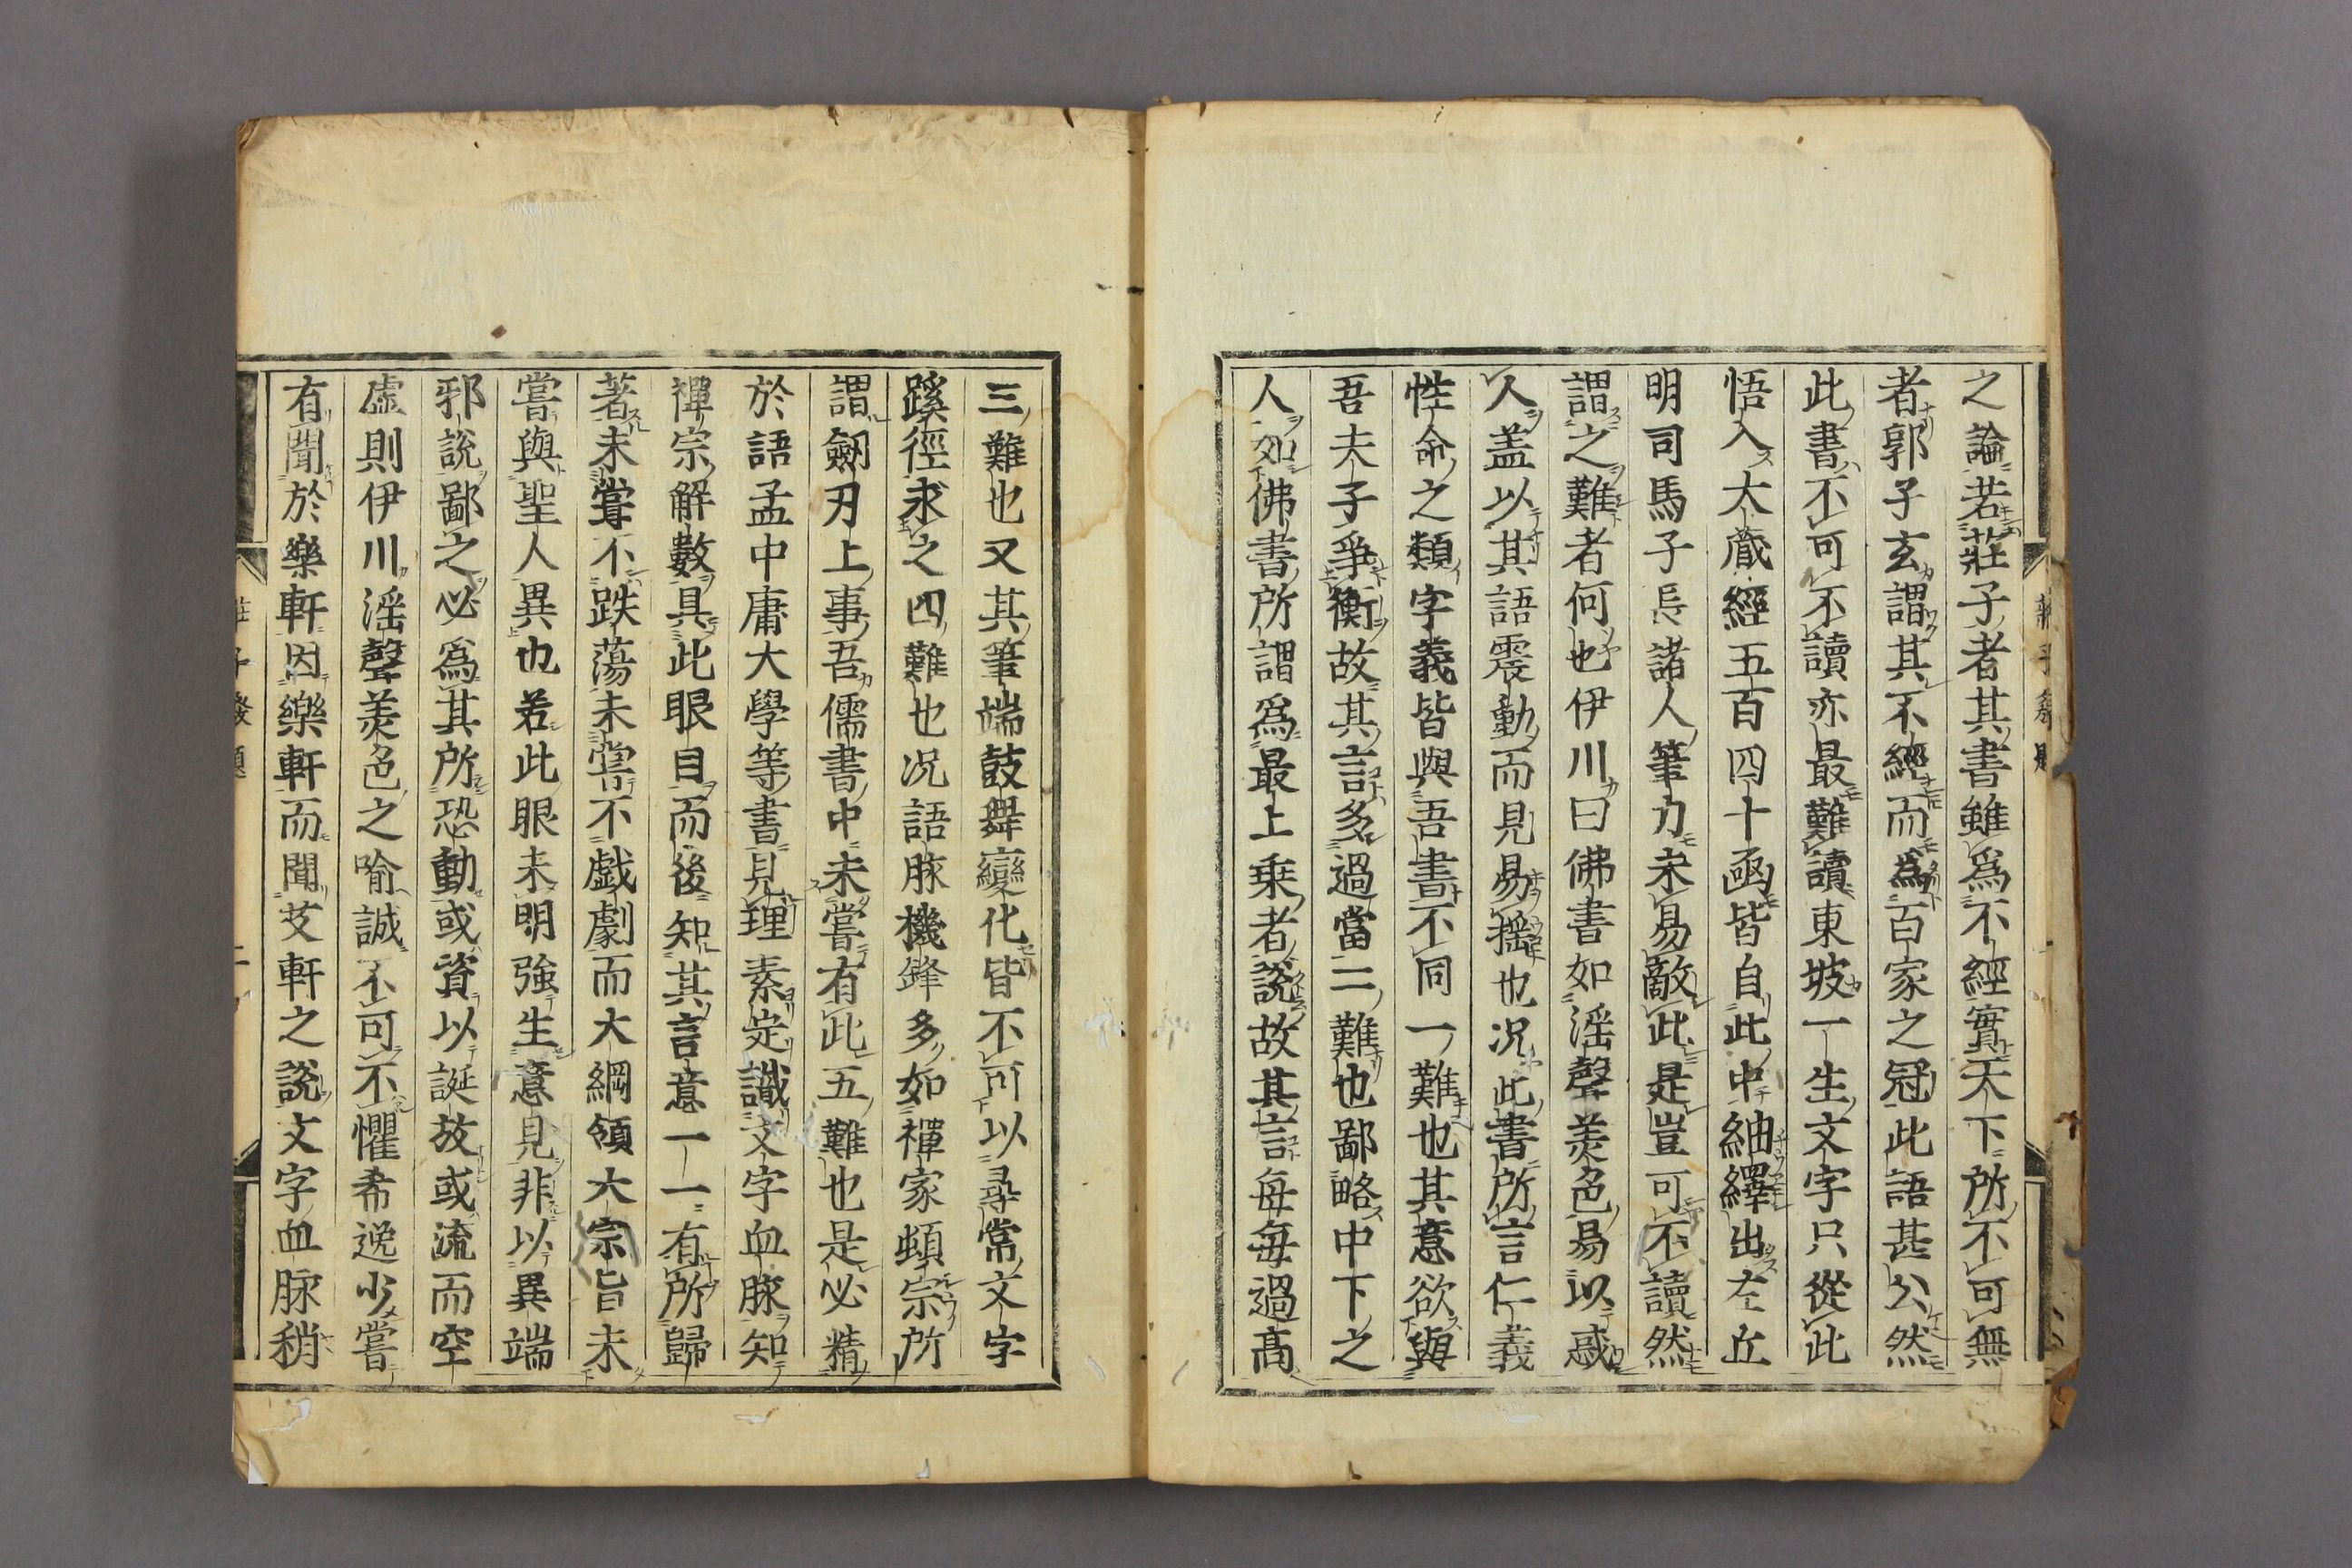 之論若莊子者其書雖爲不經實天下所不可無
者郭子玄謂其不經而爲百家之冠此語甚公然
此書不可不讀亦最難讀東坡一生文字只從此
悟入大藏經五百四十函皆自此中紬繹出左丘
明司馬子長諸人筆力未易敵此是豈可不讀然
謂之難者何也伊川曰佛書如滛聲美色易以惑
人盖以其語震動而見易搖也况此書所言仁義
性命之類字義皆與吾書不同一難也其意欲與
吾夫子爭衡故其言多過當二難也鄙略中下之
人如佛書所謂爲最上乗者說故其言每每過髙
三難也又其筆端鼓舞變化皆不可以尋常文字
蹊徑求之四難也况語脉機鋒多如禪家頓宗所
謂劔刃上事吾儒書中未嘗有此五難也是必精
於語孟中庸大學等書見理素定識文字血脉知
禪宗解數具此眼目而後知其言意一一有所歸
著未嘗不跌蕩未嘗不戯劇而大綱領大宗旨未
嘗與聖人異也若此眼未明強生意見非以異端
邪說鄙之必爲其所恐動或資以誕放或流而空
虛則伊川滛聲美色之喻誠不可不懼希逸少嘗
有聞於樂軒因樂軒而聞艾軒之說文字血脉稍